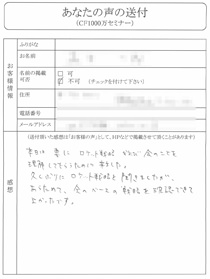 あなたの声の送付
(CF1000万セミナー)
お客様情報
ふりがな
お名前
名前の掲載
可否
□ 可
☑ 不可 (チェックを付けて下さい)
住所
電話番号
メールアドレス
感想
(送付頂いた感想は「お客様の声」として、HPなどで掲載させて頂くことがあります)
本日は妻に ロケット戦略 など 会のことを
理解してもらうために来ました。
久しぶりに ロケット戦略を聞きましたが、
あらためて、会のベースの戦略を確認できて
よかったです。